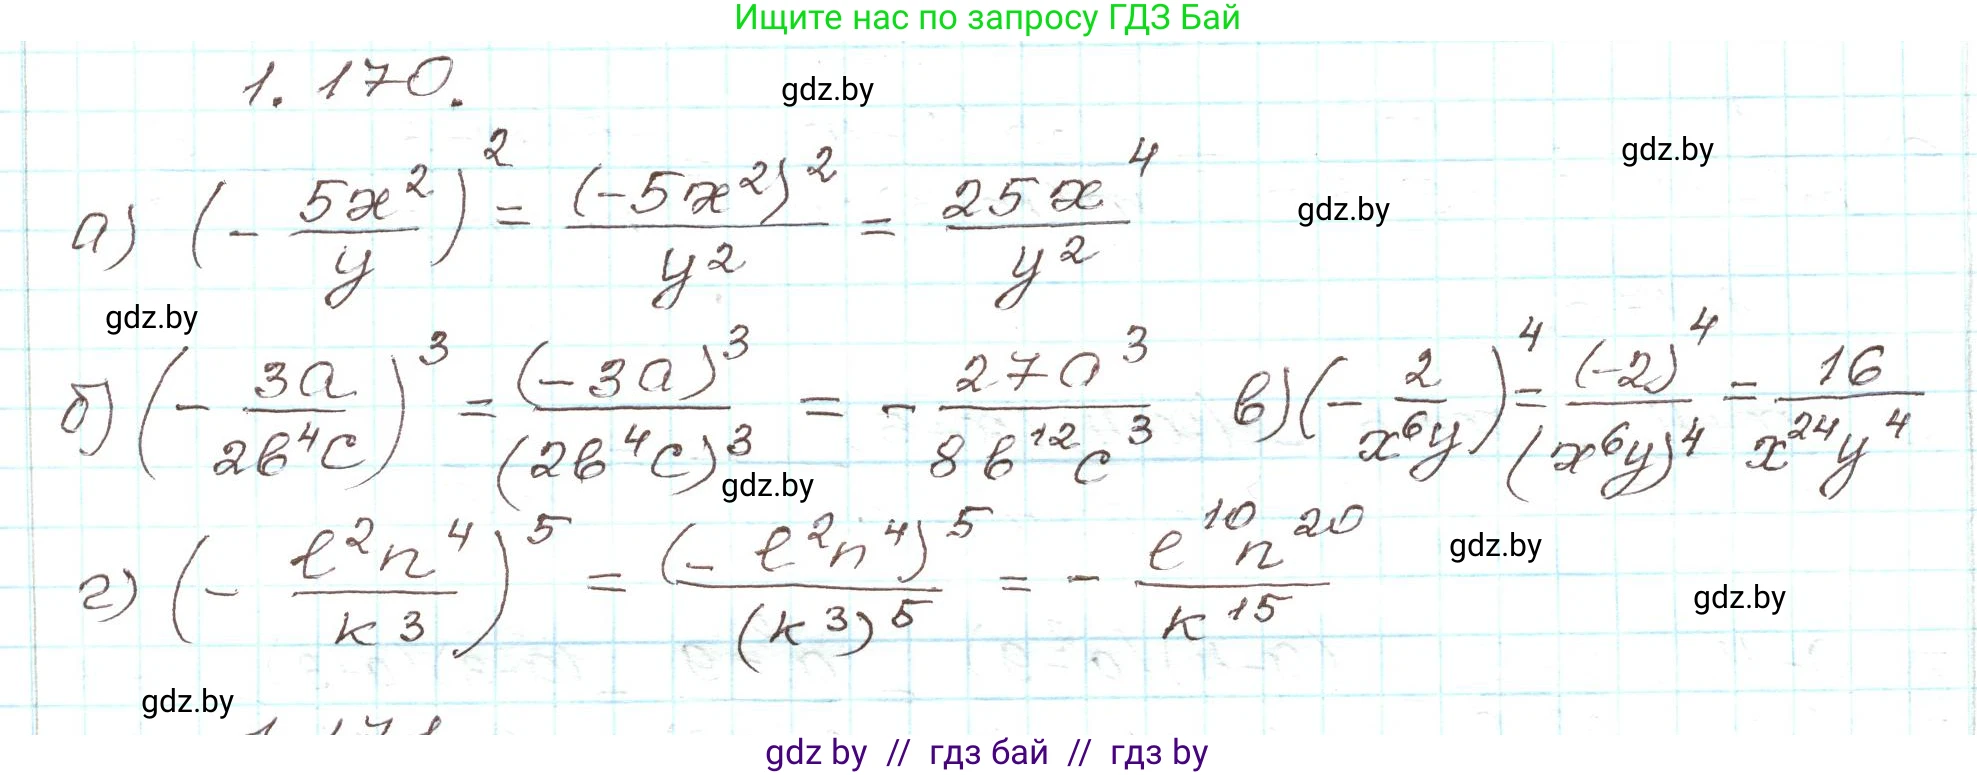 Ищите нас по запросу ГДЗ Бай
1.170.
gdz.by
gdz.by
gdz.by
а) (- 5x²/y)² = (-5x²)²/y² = 25x⁴/y²
gdz.by
б) (- 3a/2b⁴c)³ = (-3a)³/(2b⁴c)³ = - 27a³/8b¹²c³ в) (- 2/x⁶y)⁴ = (-2)⁴/(x⁶y)⁴ = 16/x²⁴y⁴
gdz.by
г) (- l²n⁴/k³)⁵ = (- l²n⁴)⁵/(k³)⁵ = - l¹⁰n²⁰/k¹⁵
gdz.by
gdz.by
gdz.by
1.171
gdz by // гдз бай // гдз by